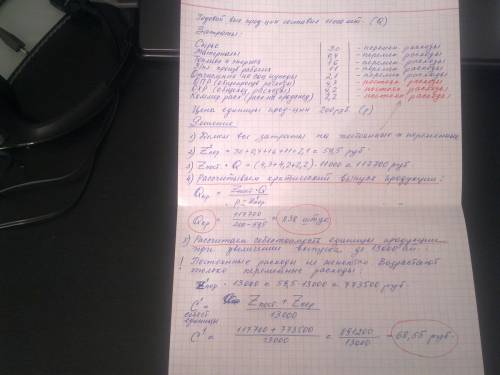 Годовой вып. прод-ции составил 11000 шт. (Q)
Затраты:
Сырьё 30 - перемен. расходы
Материалы 0,4 - перемен. расходы
Топливо и энергия - перемен. расходы
- перемен. расходы
Отчисления на соц нужды 2,1 - перемен. расходы
ОПР (общепроизв. расходы) - постоян. расходы
ОХР (общехоз. расходы) - постоян. расходы
Коммер. расх (расх на продажу) 2,2 - постоян. расходы
Цена единицы прод-ции 200 руб. (p)
Решение
1) Делим все затраты на постоянные и переменные
2) Z'пер = 30+0,4+16+11+2,1 = 59,5 руб.
3) Zпост. · Q = (4,3+4,2+2,2) · 11000 = 117700 руб
4) Рассчитываем критический выпуск продукции:
Qкр = Zпост · Q
p - Z'пер
Qкр = 117700 = 838 штук
200-59,5
5) Рассчитаем себестоимость единицы продукции
при увеличении выпуска до 13000 шт.
! Постоянные расходы не меняются. Возрастают
только переменные расходы:
Z'пер · 13000 = 59,5 · 13000 = 773500 руб.
C' = Zпост. + Zпер
себест. 13000
единицы
C' = 117700 + 773500 = 891200 = 68,55 руб.
13000 13000